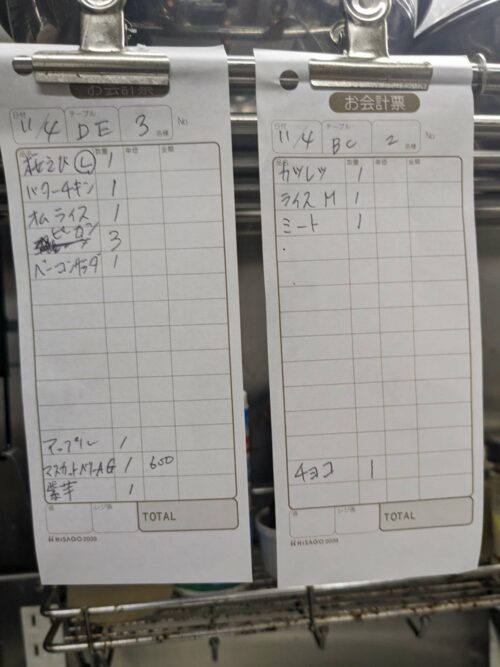 お会計票
日付 テーブル 名様 No
11/4 DE 3
品名 数量 単価 金額
桜えび Ⓛ 1
バターチキン 1
オムライス 1
ピーカン 3
ベーコンサラダ 1
アップル 1
マスカットパフェAG 1 600
紫芋 1
係 レジ係 TOTAL
HISAGO 2039
お会計票
日付 テーブル 名様 No
11/4 BC 2
品名 数量 単価 金額
カツレツ 1
ライス M 1
ミート 1
チョコ 1
係 レジ係 TOTAL
HISAGO 2039